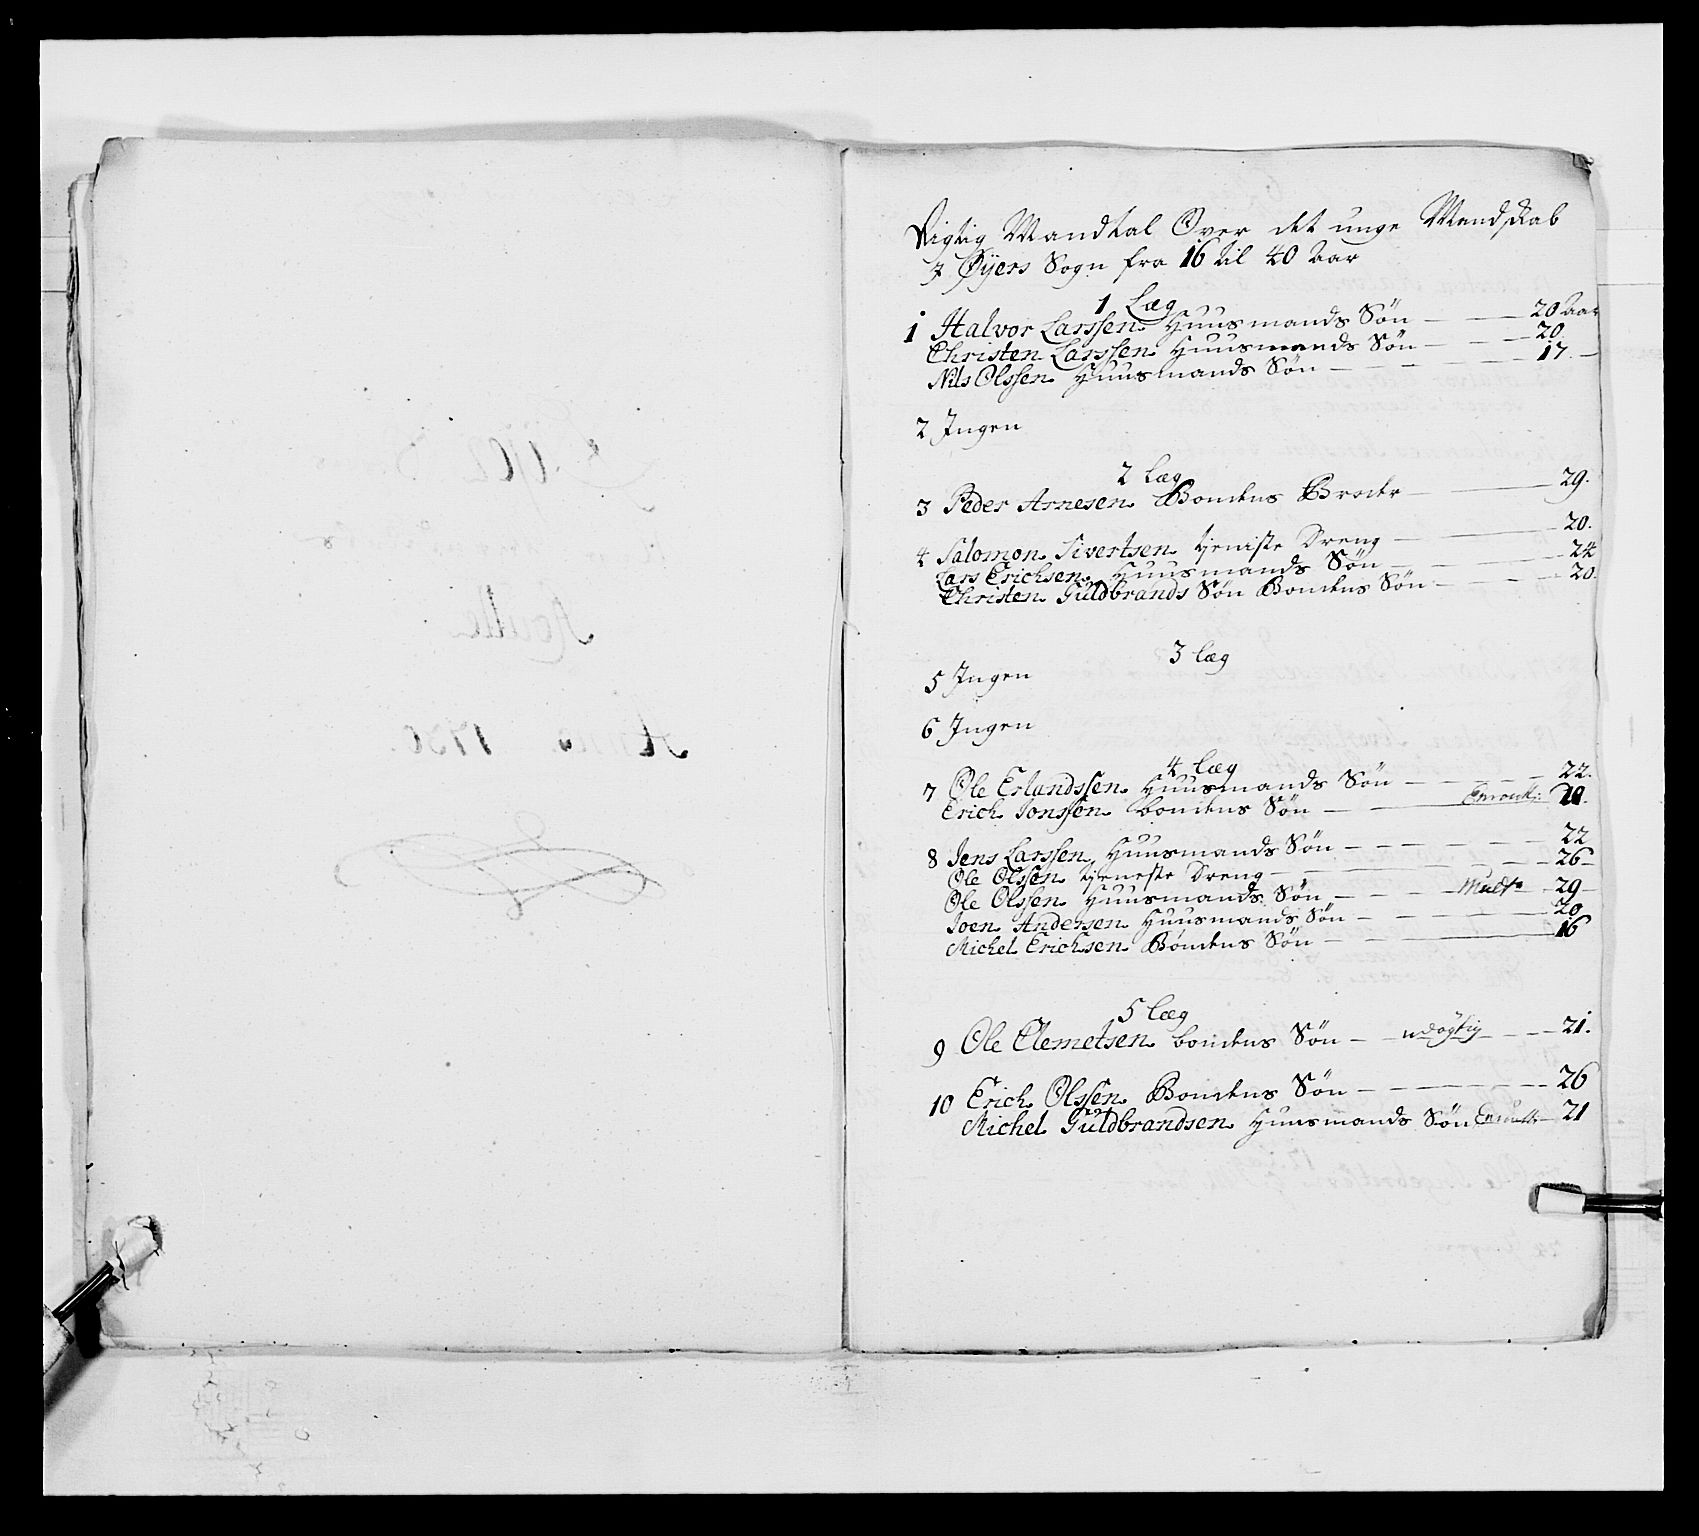 Rigtig Mandtal Over det unge Mandskab
J Øÿers Sogn fra 16 til 40 Aar
1 Læg
1 Halvor Larssen Huusmands Søn 20 Aar
Christen Larssen Huusmands Søn 20
Nils Olssen Huusmands Søn 17
2 Ingen
2 Læg
3 Peder Arnesen Bondens Broder 29.
4 Salomon Sivertsen tjeniste Dreng 20.
Lars Erichsen Huusmands Søn 24
Christen Guldbrands Søn Bondens Søn 20.
3 læg
5 Ingen
6 Ingen
4 læg
7 Ole Erlandssen Huusmands Søn 22.
Erich Jonssen bondens Søn
8 Jens Larssen Huusmands Søn 22
Ole Olssen tjeneste Dreng 26
Ole Olssen Huusmands Søn 29
Joen Andersen Huusmands Søn 20
Michel Erichsen Bondens Søn 16
5 læg
9 Ole Clemetsen bondens Søn udøgtig 21.
10 Erich Olssen Bondens Søn 26
Michel Guldbrandsen Huusmands Søn Enroull: 21